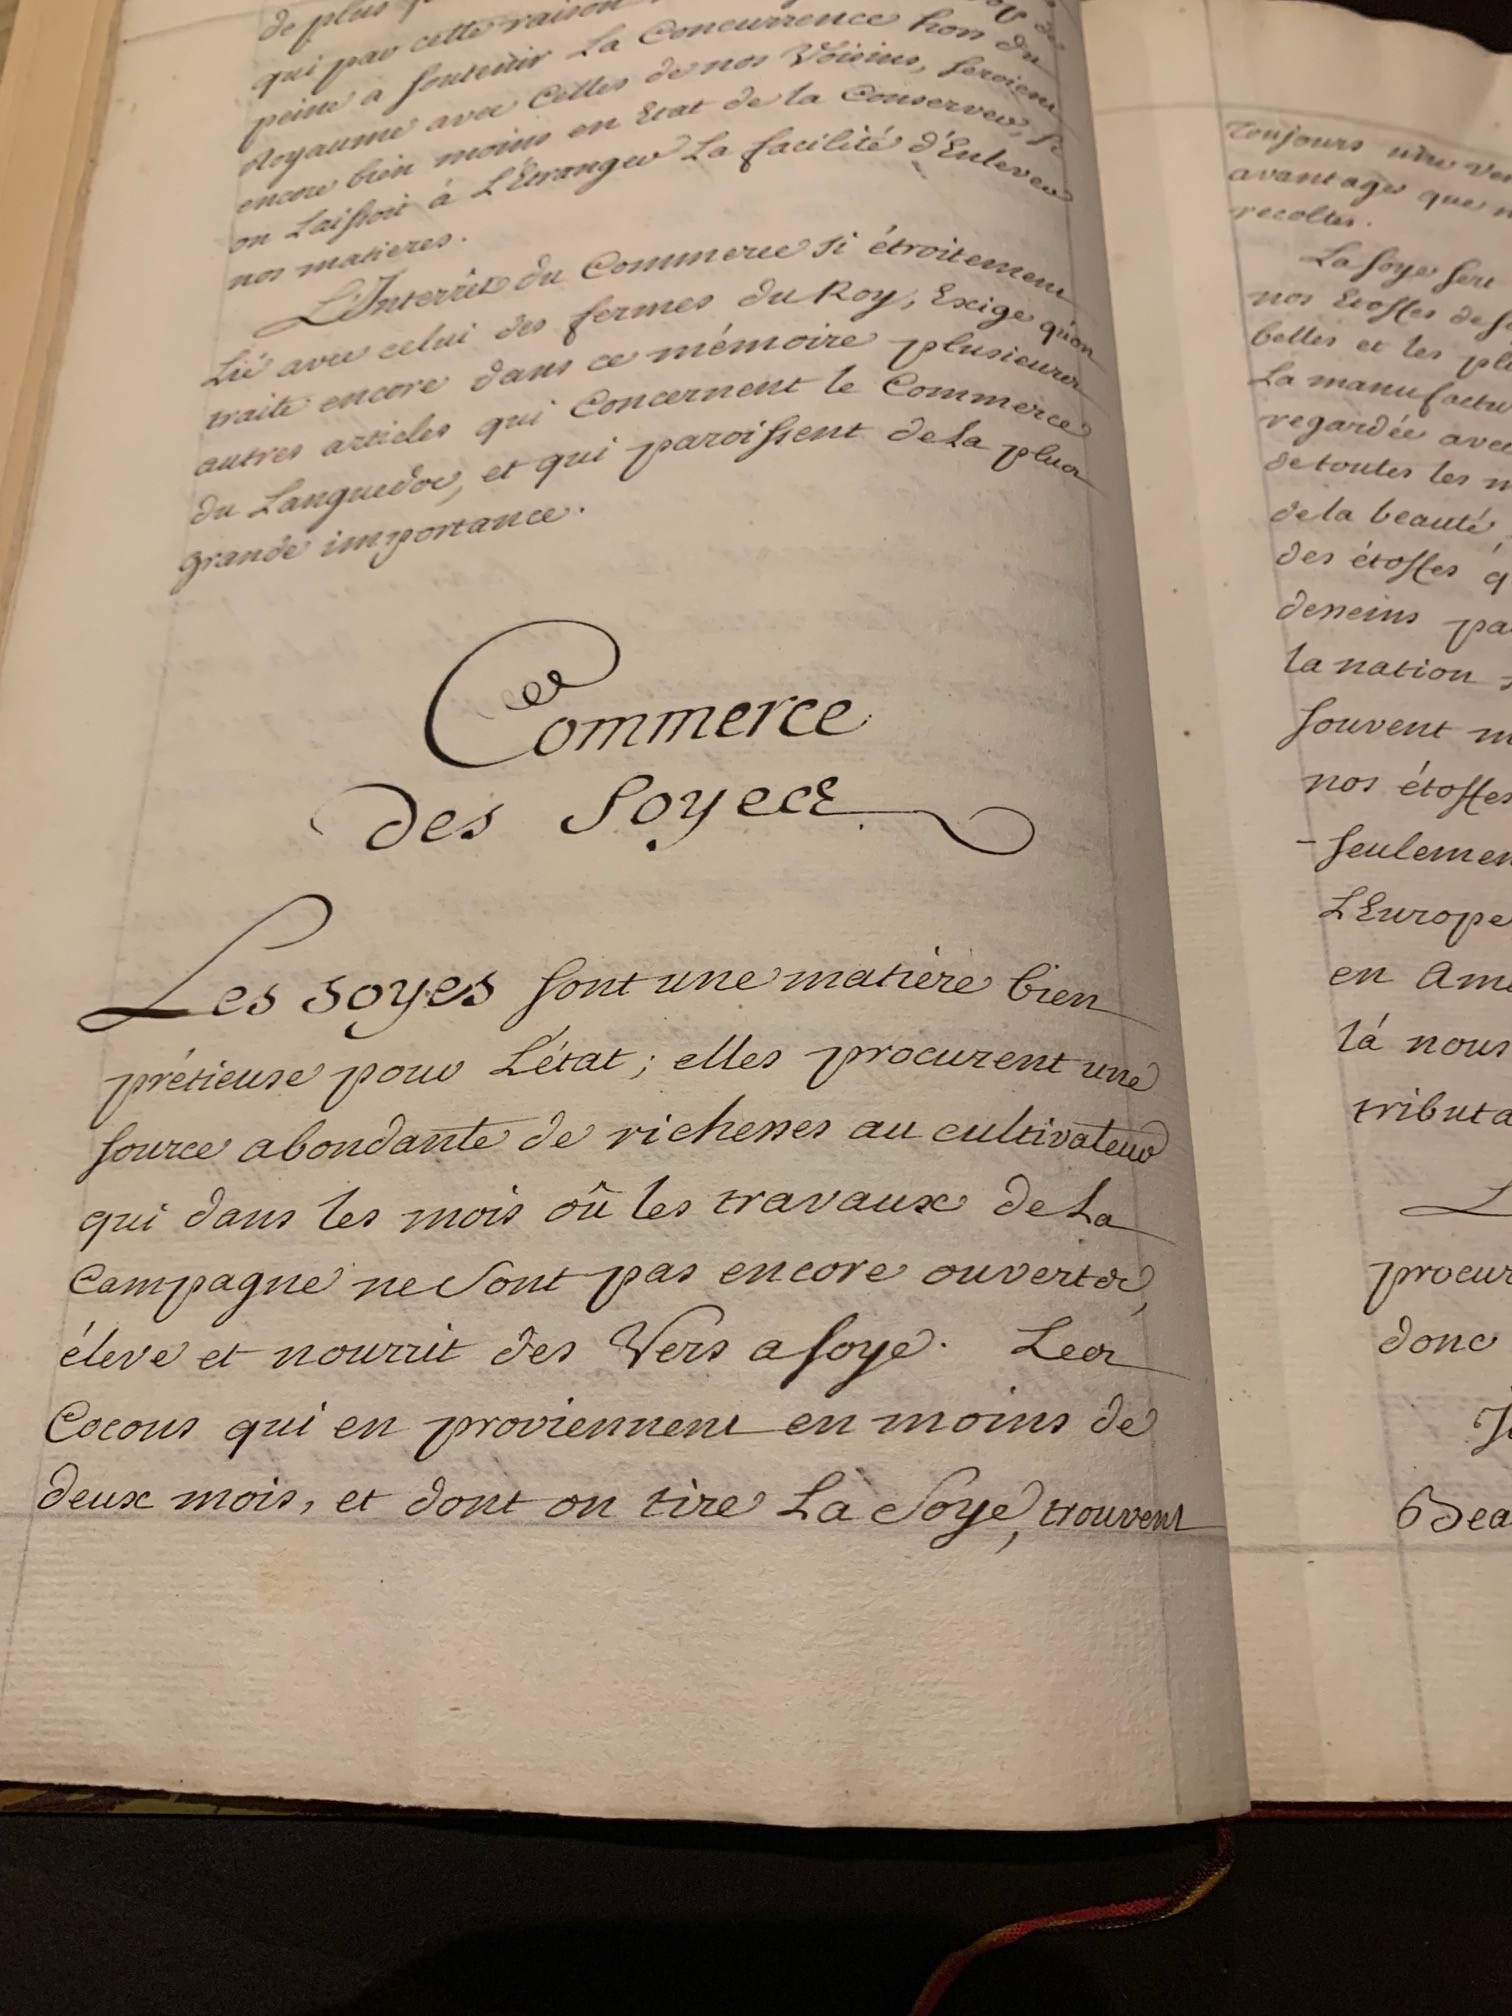 de plus
qui par cette raison
peine a soutenir La Concurrence hors du
Royaume avec Celles de nos Voisins, seroient
encore bien moins en Etat de la Conserver, si
on Laissoit à L'Etranger La facilité d'Enlever
nos matieres.
L'Interrêt du Commerce si étroitement
Lié avec celui des fermes du Roy, Exige qu'on
traite encore dans ce mémoire plusieurs
autres articles qui Concernent le Commerce
du Languedoc, et qui paroissent de La plus
grande importance.
Commerce
des Soyes
Les soyes sont une matiere bien
prétieuse pour L'état; elles procurent une
source abondante de richesses au cultivateur
qui dans les mois où les travaux de La
Campagne ne Sont pas encore ouverts,
éleve et nourrit des Vers a soye. Les
Cocons qui en proviennent en moins de
deux mois, et dont on tire La Soye, trouvent
Toujours une
avantage que
recoltes.
La soye sert
nos Etoffes de
belles et les
La manufactu
regardée avec
de toutes les
de la beauté,
des étoffes q
desseins pa
la nation
souvent
nos étoffes
seulemen
L'Europe
en Ame
là nous
tributa
L
procur
donc
Bea